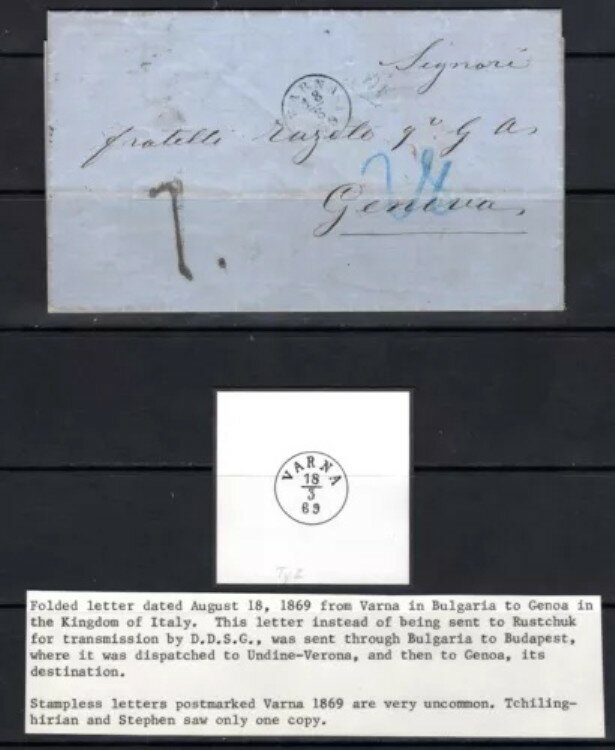 Signori
VARNA
8
fratelli qm G A
24
Genova
7.
VARNA
18
3
69
Ty 2
Folded letter dated August 18, 1869 from Varna in Bulgaria to Genoa in
the Kingdom of Italy. This letter instead of being sent to Rustchuk
for transmission by D.D.S.G., was sent through Bulgaria to Budapest,
where it was dispatched to Undine-Verona, and then to Genoa, its
destination.
Stampless letters postmarked Varna 1869 are very uncommon. Tchiling-
hirian and Stephen saw only one copy.